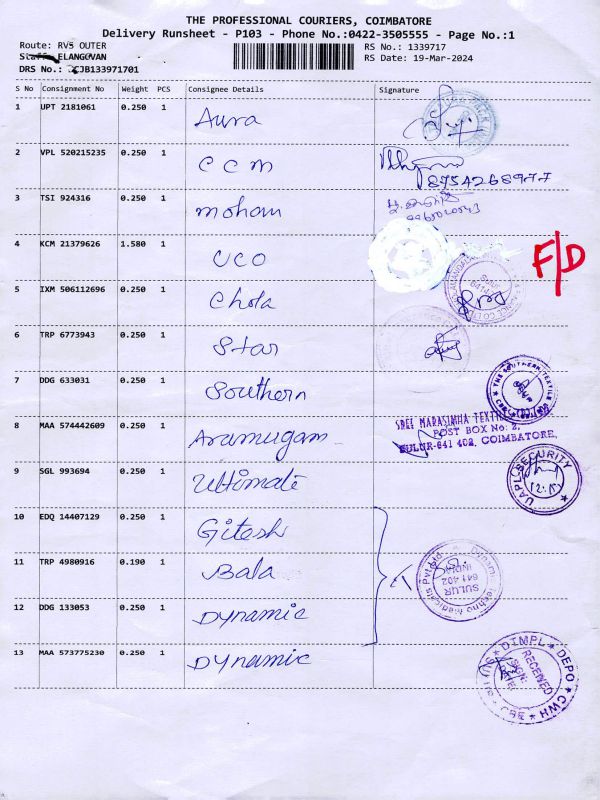 THE PROFESSIONAL COURIERS, COIMBATORE
Delivery Runsheet - P103 - Phone No.:0422-3505555 - Page No.:1
Route: RVS OUTER
RS No.: 1339717
Staff: ELANGOVAN
RS Date: 19-Mar-2024
DRS No.: CJB133971701
S No Consignment No Weight PCS Consignee Details Signature
1 UPT 2181061 0.250 1 Aura
2 VPL 520215235 0.250 1 CCM
8754268977
3 TSI 924316 0.250 1 Mohan
4 KCM 21379626 1.580 1 UCO
F/D
5 IXM 506112696 0.250 1 Chola
6 TRP 6773943 0.250 1 Star
7 DDG 633031 0.250 1 Southern
THE SOUTHERN TEXTILE
8 MAA 574442609 0.250 1 Arumugam
SREE NARASIMHA TEXTILE
POST BOX No: 2,
SULUR-641 402, COIMBATORE.
9 SGL 993694 0.250 1 Ultimate
UAPL SECURITY
10 EDQ 14407129 0.250 1 Gitesh
11 TRP 4980916 0.190 1 Bala
Dynamic Techno Medicals Pvt Ltd
SULUR
641 402
INDIA
12 DDG 133053 0.250 1 Dynamic
13 MAA 573775230 0.250 1 Dynamic
DIMPL DEPO CWH CBE
RECEIVED
SIGN:
DATE: